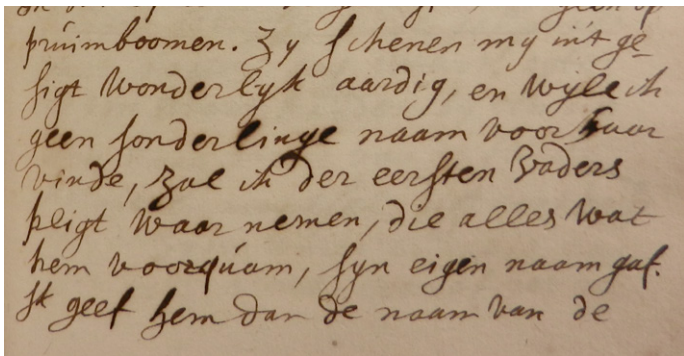 pruimboomen. Zy schenen my int ge-
sigt wonderlyk aardig, en wyle ik
geen sonderlinge naam voor haar
vinde, zal ik der eersten Vaders
pligt waar nemen, die alles wat
hem voorquam, syn eigen naam gaf.
Ik geef hem dan de naam van de